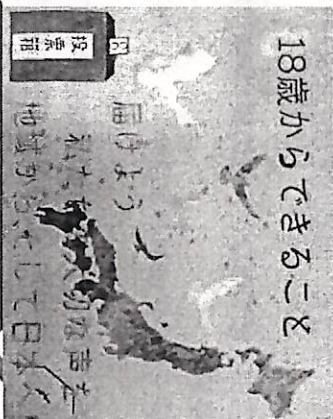 18歳からできること
届けよう
私たちの大切な声を
地域から そして日本へ
投票箱